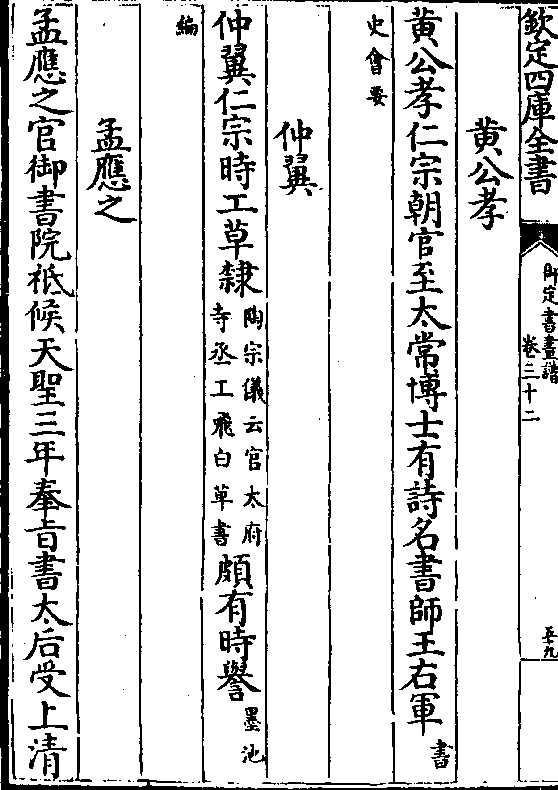 欽定四庫全書
御定書畫譜
卷三十二
五九
黄公孝
黄公孝仁宗朝官至太常博士有詩名書師王右軍書
史會要
仲翼
仲翼仁宗時工草隸陶宗儀云官太府
寺丞工飛白草書頗有時譽墨池
編
孟應之
孟應之官御書院祗候天聖三年奉旨書太后受上清